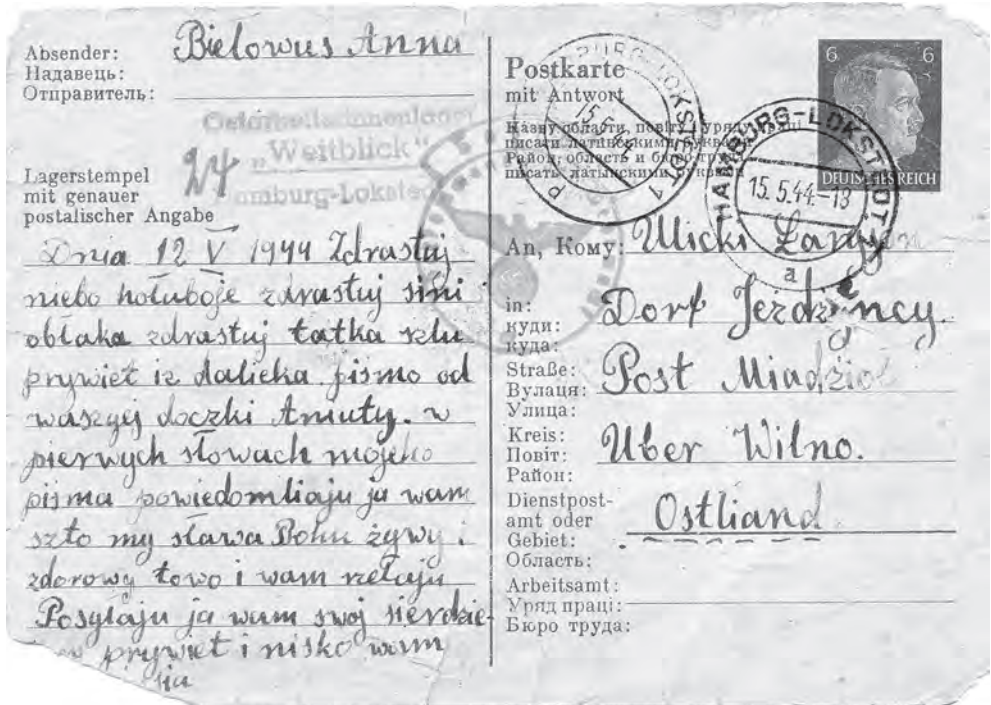 Absender:
Надавець:
Отправитель:
Bielowus Anna
"Weitblick"
Hamburg-Lokstedt
24
Lagerstempel
mit genauer
postalischer Angabe
Dnia 12 V 1944 Zdrastuj
niebo hołuboje zdrastuj sini
obłaka zdrastuj tatka szlu
prywiet iz dalieka pismo od
waszej doczki Aniuty. w
pierwych słowach mojeho
piśma powiedomliaju ja wam
szto my sława Bohu żywy i
zdorowy towo i wam
Posyłaju ja wam swoj sierdie-
prywiet i nisko wam
Postkarte
mit Antwort
Назву области, повіту і уряду праці
писати латинскими буквами
Район, область и бюро труда
писать латынскими буквами
15.5.44
HAMBURG-LOKSTEDT
15.5.44.-18
a
6 6
DEUTSCHES REICH
An, Кому: Ulicki
in:
куди:
куда:
Dorf
Straße:
Вулаця:
Улица:
Post Miadzioł
Kreis:
Повіт:
Район:
Uber Wilno.
Dienstpost-
amt oder
Gebiet:
Область:
Ostliand
Arbeitsamt:
Уряд праці:
Бюро труда: